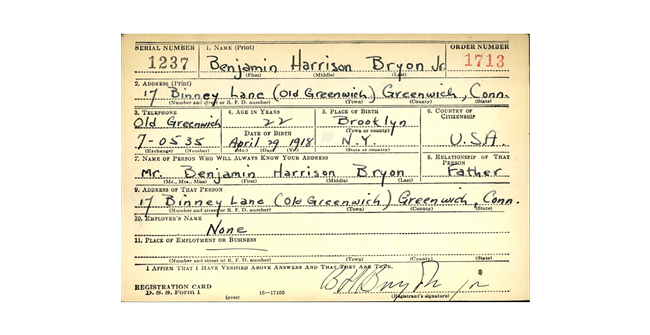 SERIAL NUMBER 1. NAME (Print) ORDER NUMBER
1237 Benjamin Harrison Bryon Jr. 1713
(First) (Middle) (Last)
2. ADDRESS (Print)
17 Binney Lane (Old Greenwich) Greenwich, Conn.
(Number and street or R. F. D. number) (Town) (County) (State)
3. TELEPHONE 4. AGE IN YEARS 5. PLACE OF BIRTH 6. COUNTRY OF CITIZENSHIP
Old Greenwich 22 Brooklyn
DATE OF BIRTH (Town or county)
7-0535 April 29 1918 N.Y. U.S.A.
(Exchange) (Number) (Mo.) (Day) (Yr.) (State or country)
7. NAME OF PERSON WHO WILL ALWAYS KNOW YOUR ADDRESS 8. RELATIONSHIP OF THAT PERSON
Mr. Benjamin Harrison Bryon Father
(Mr., Mrs., Miss) (First) (Middle) (Last)
9. ADDRESS OF THAT PERSON
17 Binney Lane (Old Greenwich) Greenwich, Conn.
(Number and street or R. F. D. number) (Town) (County) (State)
10. EMPLOYER'S NAME
None
11. PLACE OF EMPLOYMENT OR BUSINESS
(Number and street or R. F. D. number) (Town) (County) (State)
I AFFIRM THAT I HAVE VERIFIED ABOVE ANSWERS AND THAT THEY ARE TRUE.
REGISTRATION CARD
D. S. S. Form 1 (over) 16—17105 (Registrant's signature)